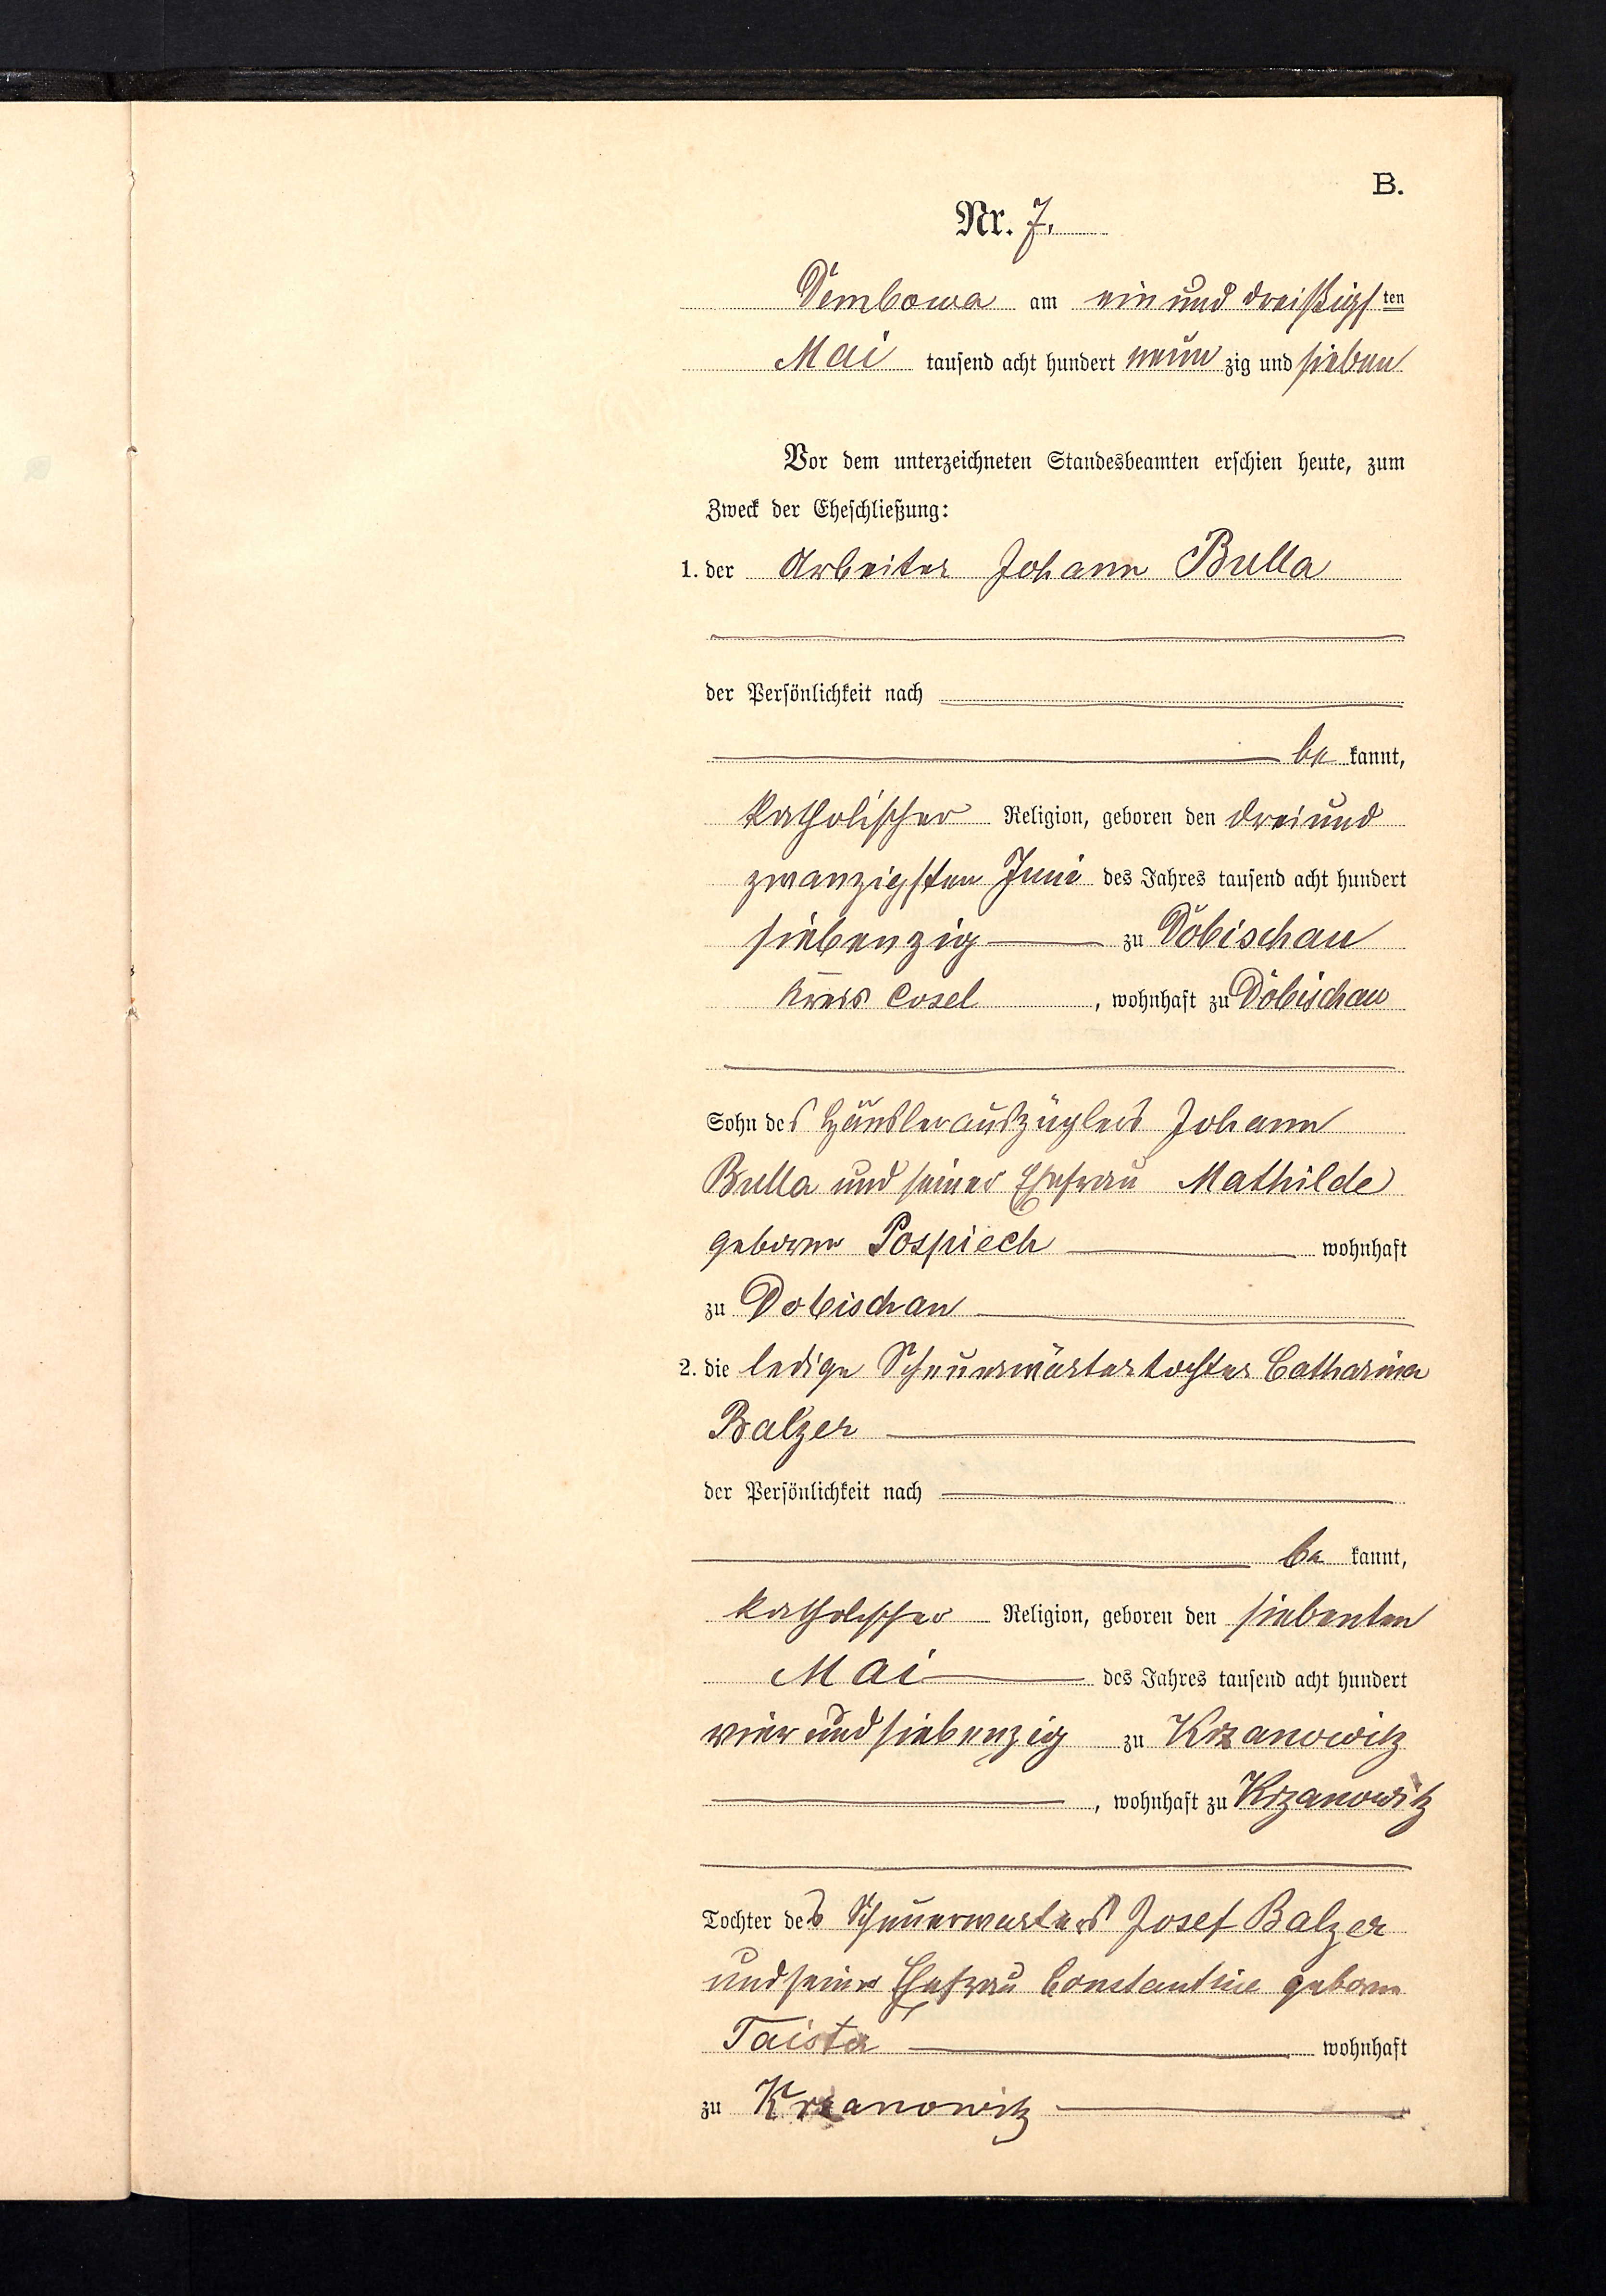 B.
Nr. 7.
Dembowa am ein und dreißigsten
Mai tausend acht hundert neun zig und sieben
Vor dem unterzeichneten Standesbeamten erschien heute, zum
Zweck der Eheschließung:
1. der Arbeiter Johann Bulla
der Persönlichkeit nach
be kannt,
katholischer Religion, geboren den drei und
zwanzigsten Juni des Jahres tausend acht hundert
siebenzig zu Dobischau
Kreis Cosel, wohnhaft zu Dobischau
Sohn des Häuslerauszüglers Johann
Bulla und seiner Ehefrau Mathilde
geborne Pospiech wohnhaft
zu Dobischau
2. die ledige Scheuerwärtertochter Catharina
Balzer
der Persönlichkeit nach
be kannt,
katholischer Religion, geboren den siebenten
Mai des Jahres tausend acht hundert
vier und siebenzig zu Krzanowitz
, wohnhaft zu Krzanowitz
Tochter des Scheuerwarters Josef Balzer
und seiner Ehefrau Constantine geborne
Taista wohnhaft
zu Krzanowitz